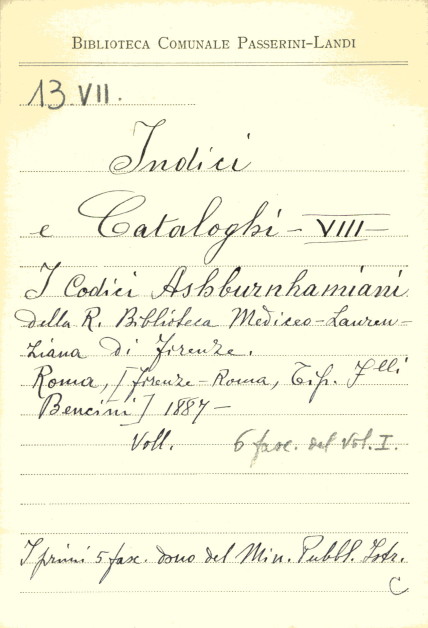 BIBLIOTECA COMUNALE PASSERINI-LANDI
13 VII.
Indici
e Cataloghi - VIII -
I Codici Ashburnhamiani
della R. Biblioteca Mediceo-Lauren-
ziana di Firenze.
Roma, [Firenze-Roma, Tip. Flli
Bencini] 1887 -
Voll. 6 fasc. del Vol. I.
I primi 5 fasc. dono del Min. Pubbl. Istr.
C